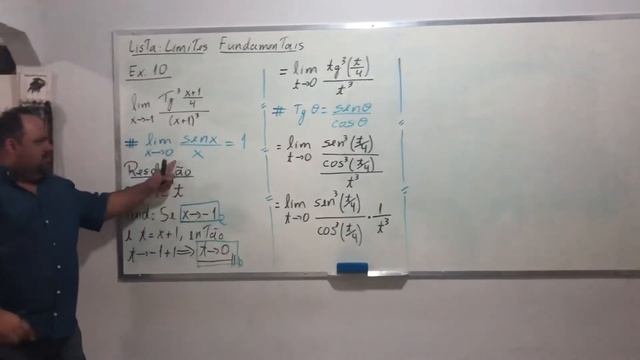 Lista: Limites Fundamentais
Ex. 10
lim x→-1 Tg³ (x+1)/4 / (x+1)³
# lim x→0 senx/x = 1
Resolução
= t
Se x→-1
e t=x+1, então
t→-1+1 ⇒ t→0
= lim t→0 tg³(t/4) / t³
# Tg θ = senθ / cosθ
= lim t→0 sen³(t/4) / cos³(t/4) / t³
= lim t→0 sen³(t/4) / cos³(t/4) · 1/t³